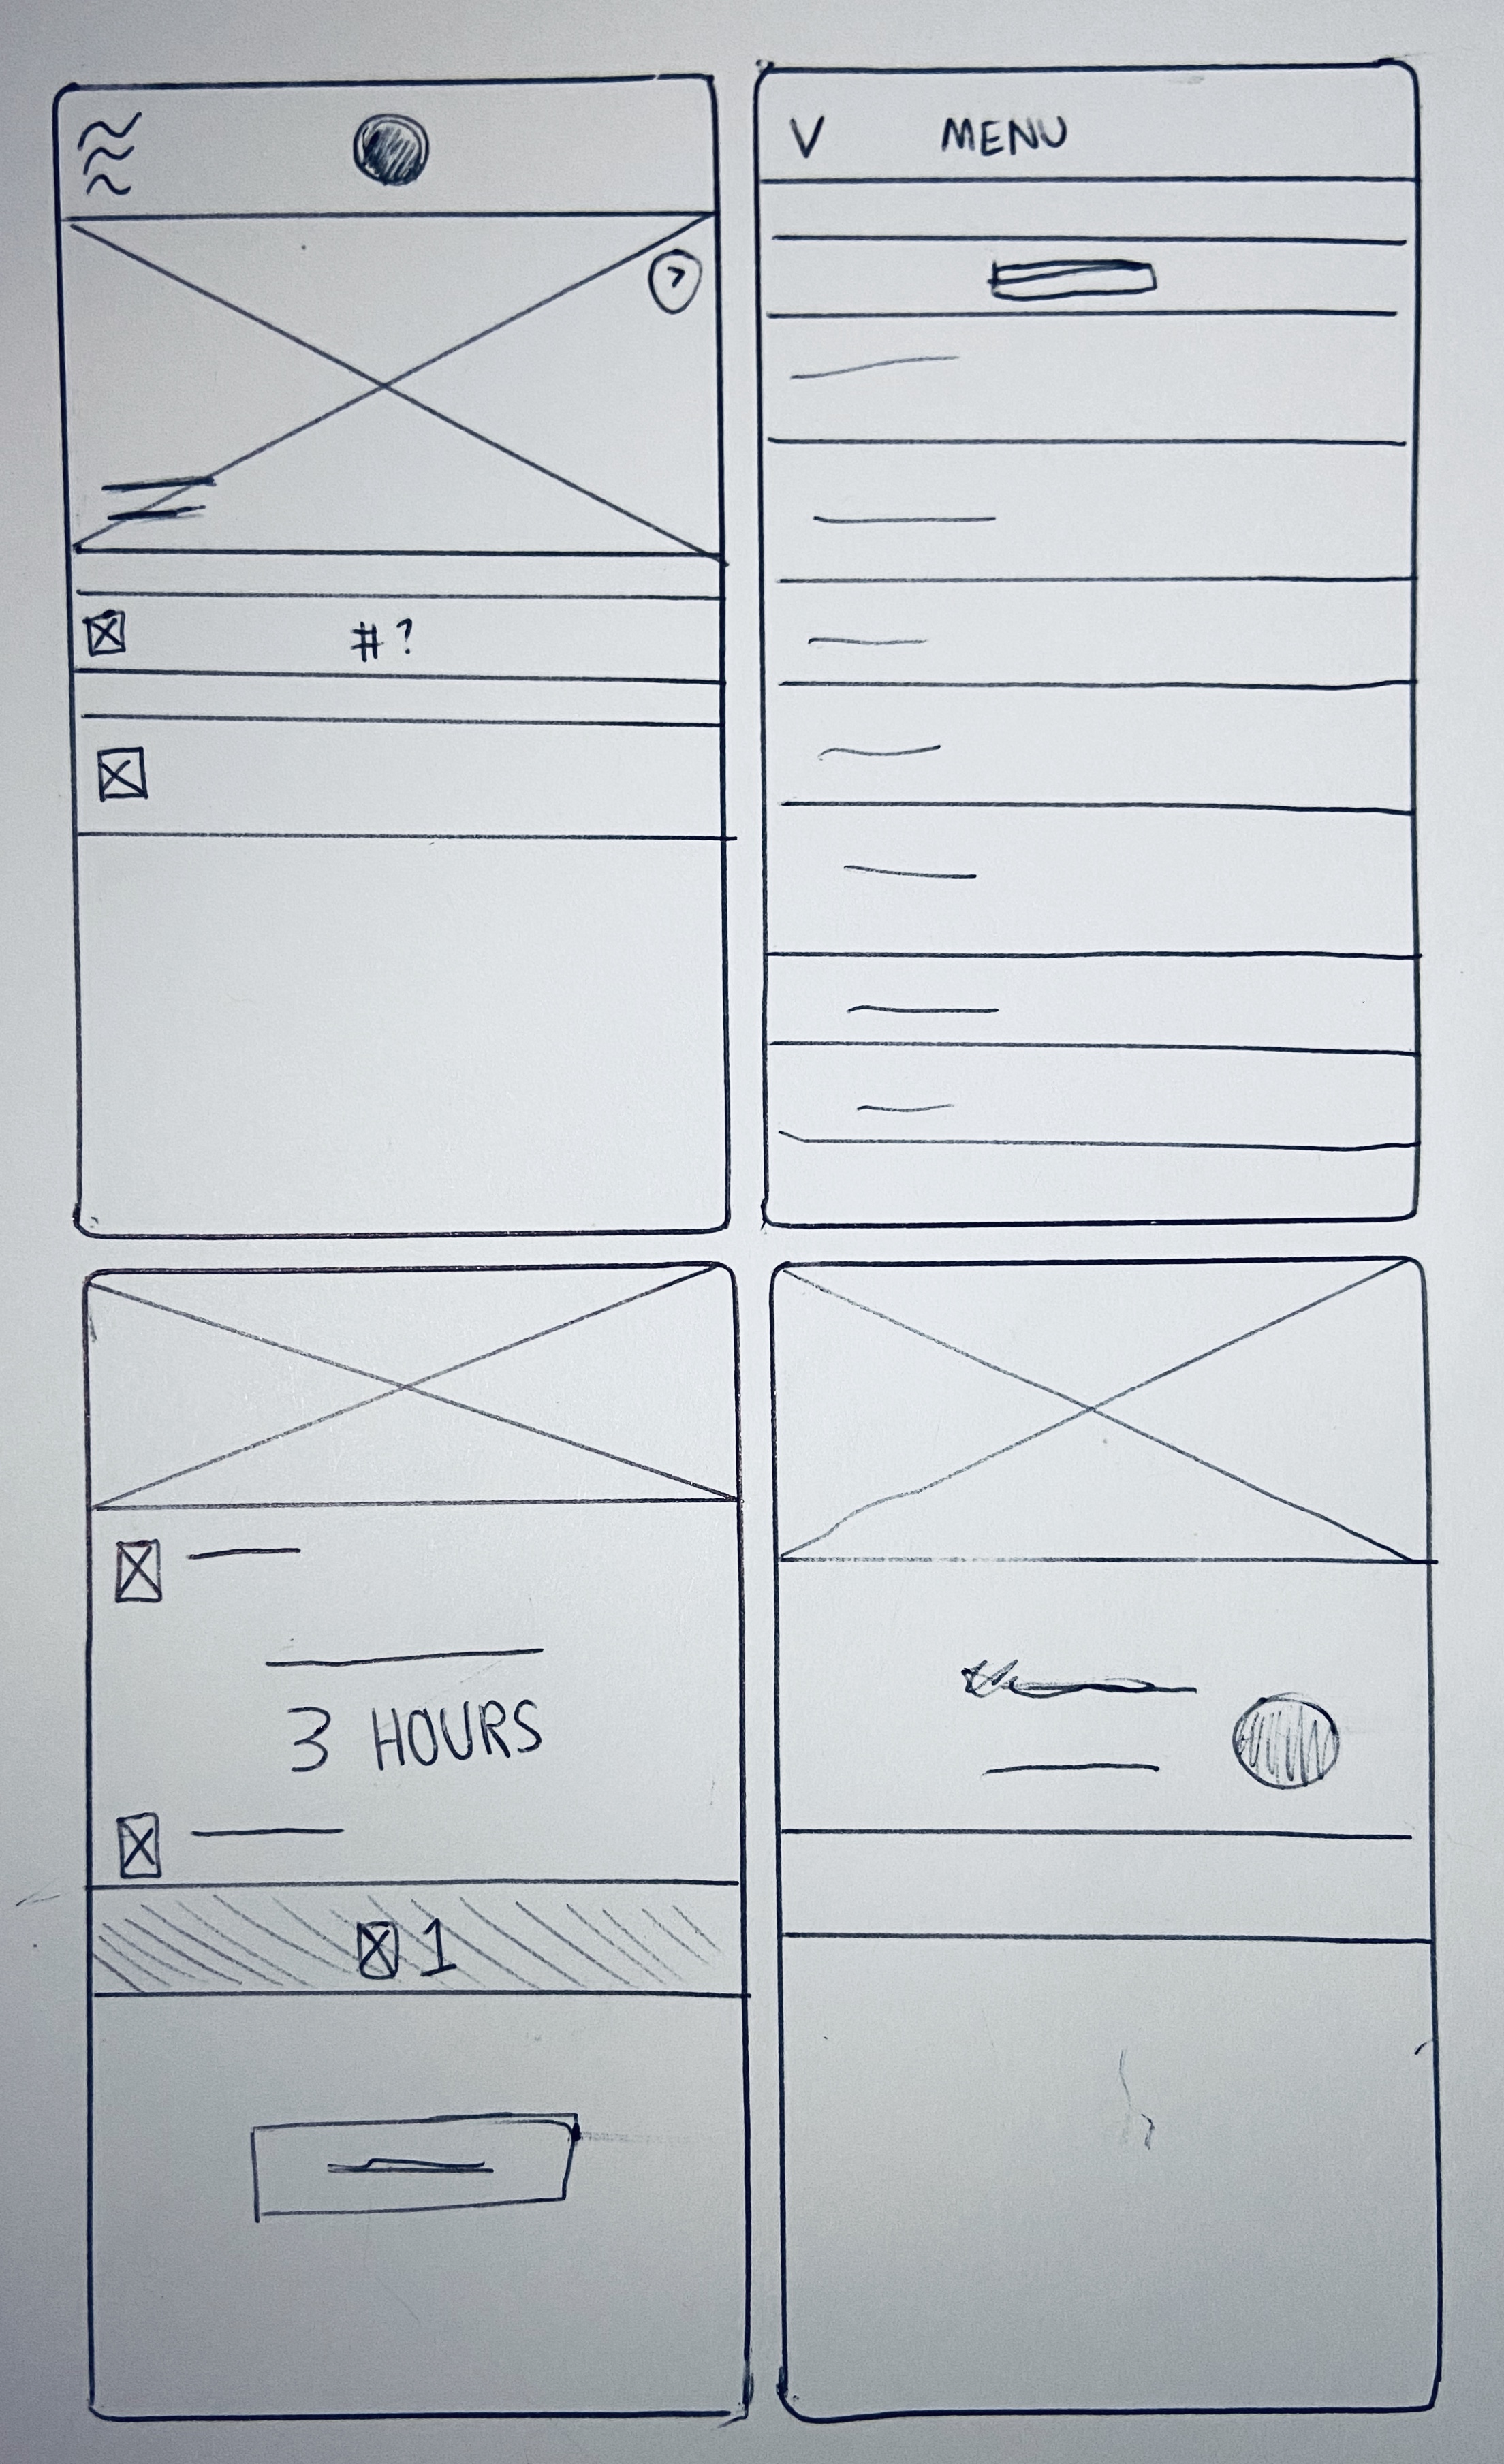 MENU
# ?
3 HOURS
1